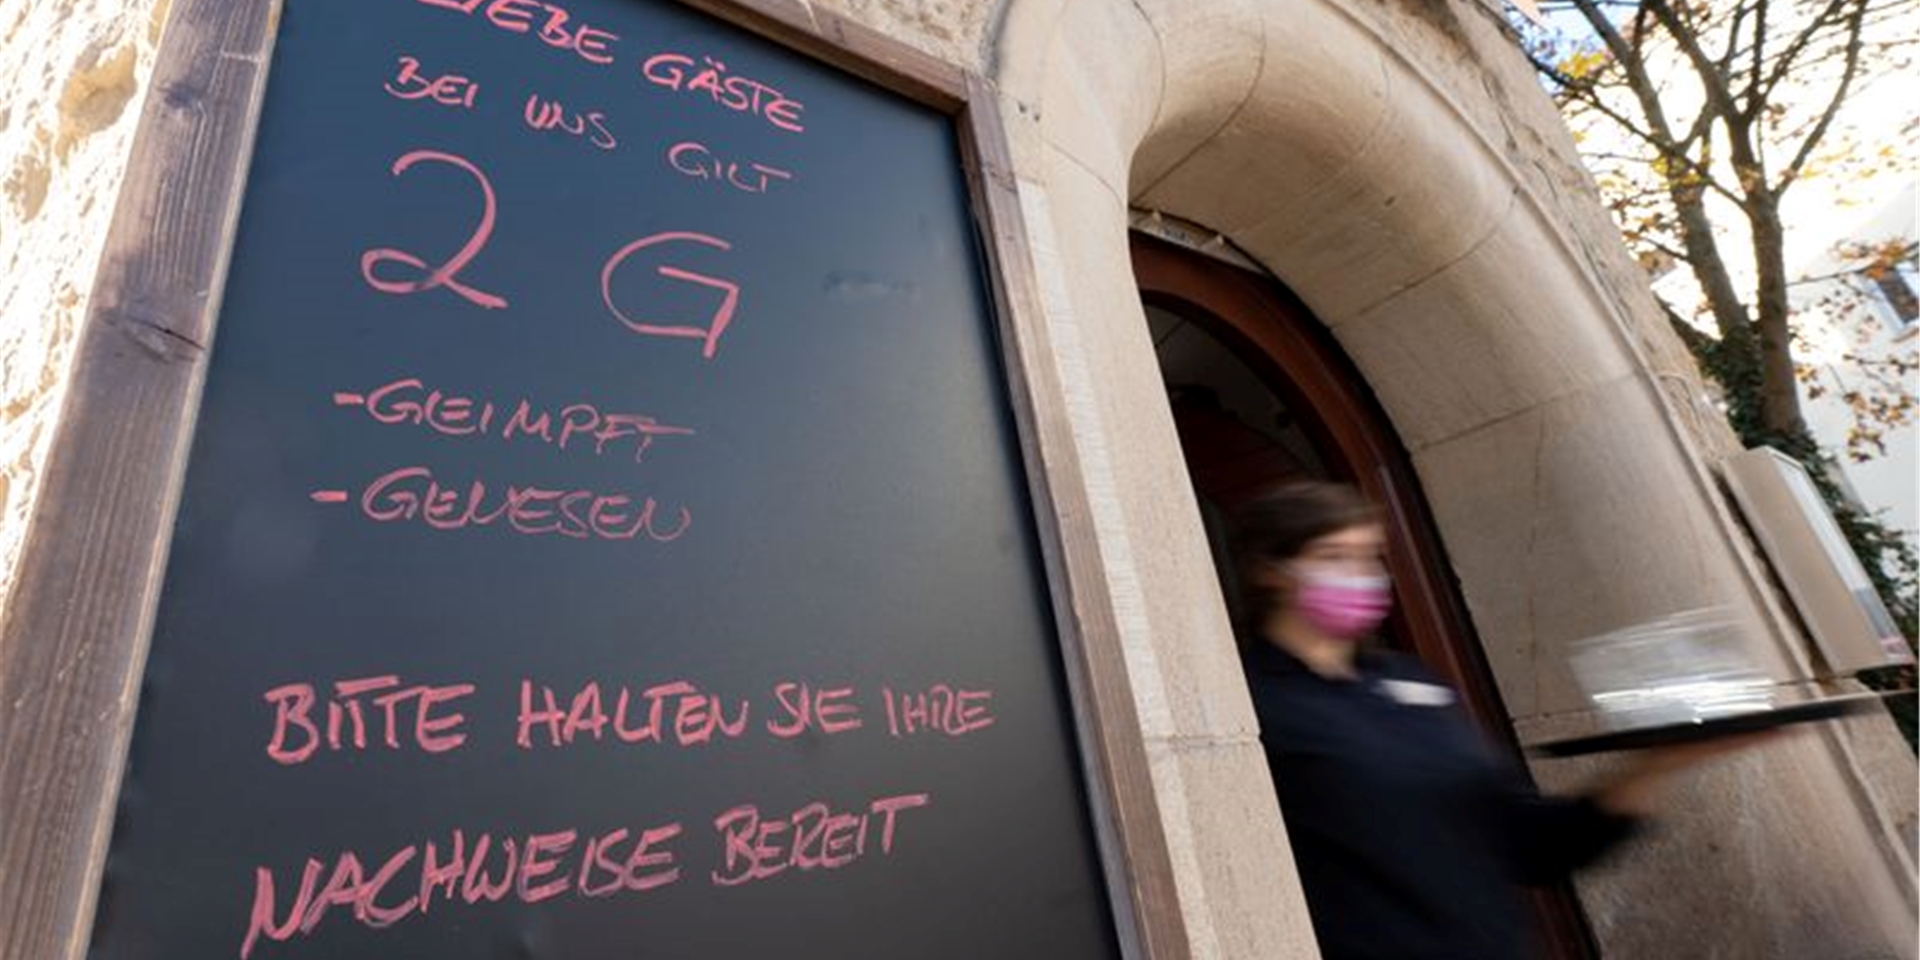 LIEBE GÄSTE
BEI UNS GILT
2 G
-GEIMPFT
-GENESEN
BITTE HALTEN SIE IHRE
NACHWEISE BEREIT